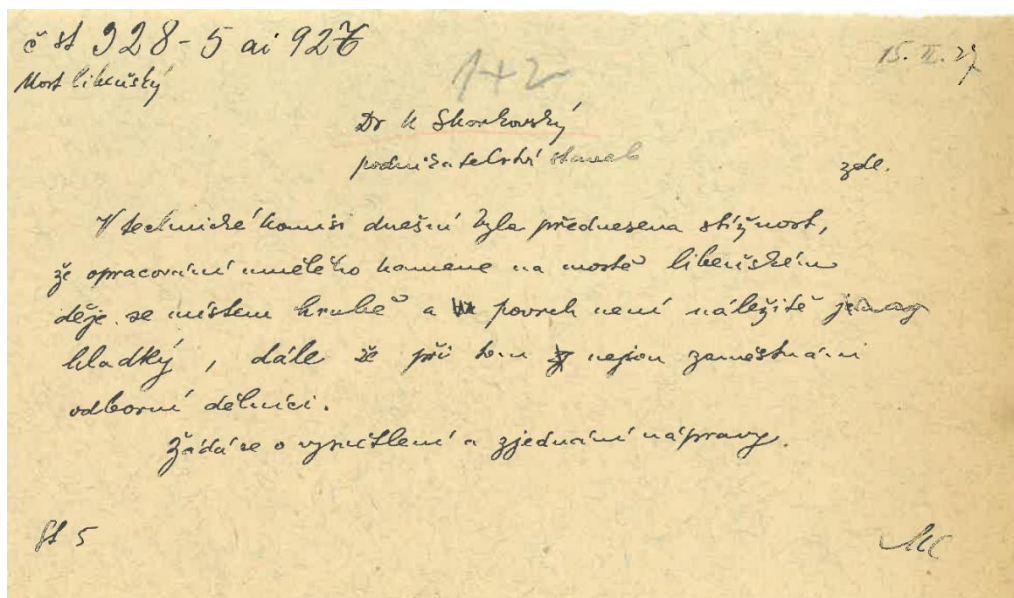 č st 928-5 ai 927
15. II. 27
Most libeňský
1+2
Dr K Skorkovský
podnikatelství staveb
zde.
V technické komisi dnešní byla přednesena stížnost,
že opracování umělého kamene na mostě libeňském
děje se místem hrubě a povrch není náležitě
hladký, dále že při tom nejsou zaměstnáni
odborní dělníci.
Žádá se o vysvětlení a zjednání nápravy.
St 5